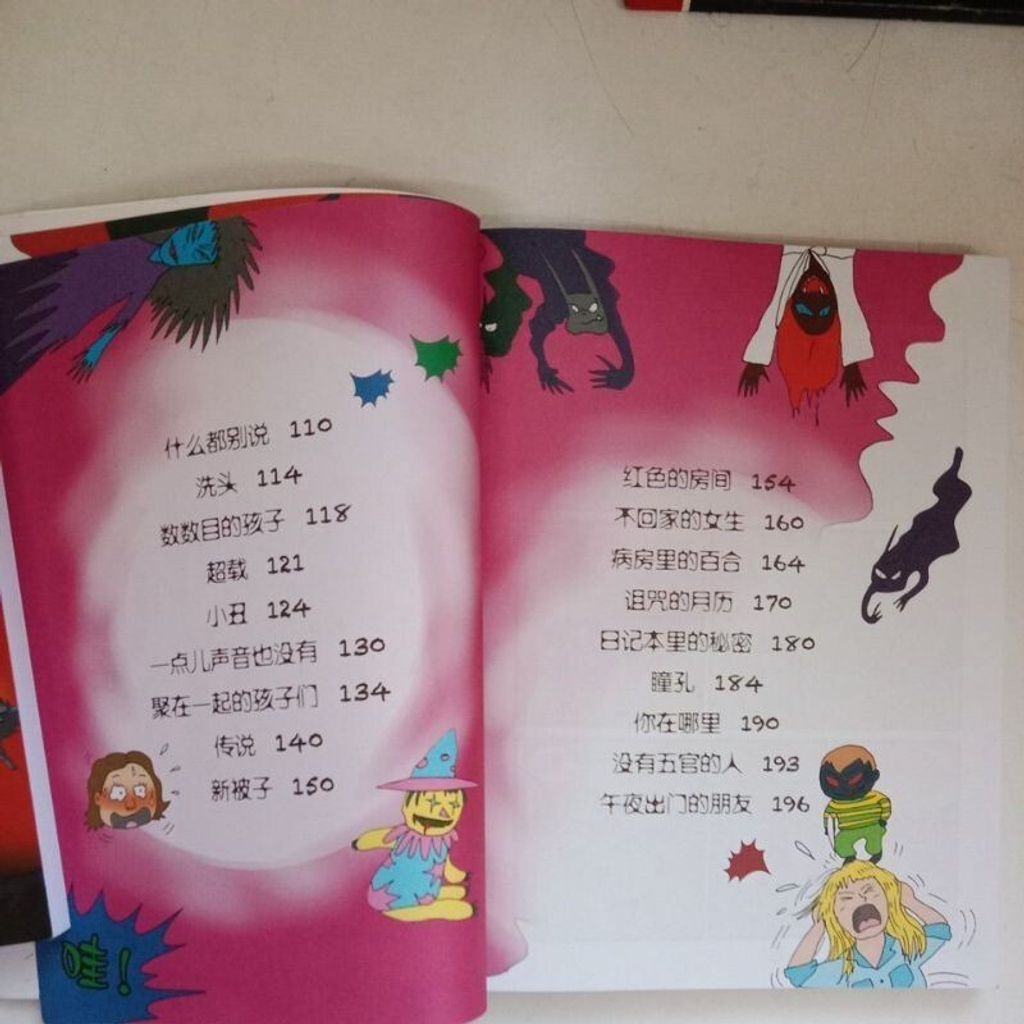 什么都别说 110
洗头 114
数数目的孩子 118
超载 121
小丑 124
一点儿声音也没有 130
聚在一起的孩子们 134
传说 140
新被子 150
红色的房间 154
不回家的女生 160
病房里的百合 164
诅咒的月历 170
日记本里的秘密 180
瞳孔 184
你在哪里 190
没有五官的人 193
午夜出门的朋友 196